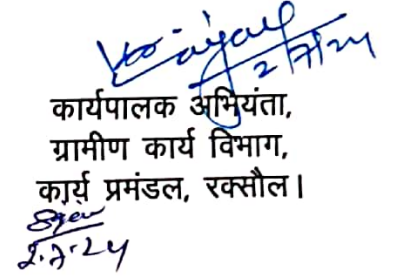 2/7/24
कार्यपालक अभियंता,
ग्रामीण कार्य विभाग,
कार्य प्रमंडल, रक्सौल।
2.7.24